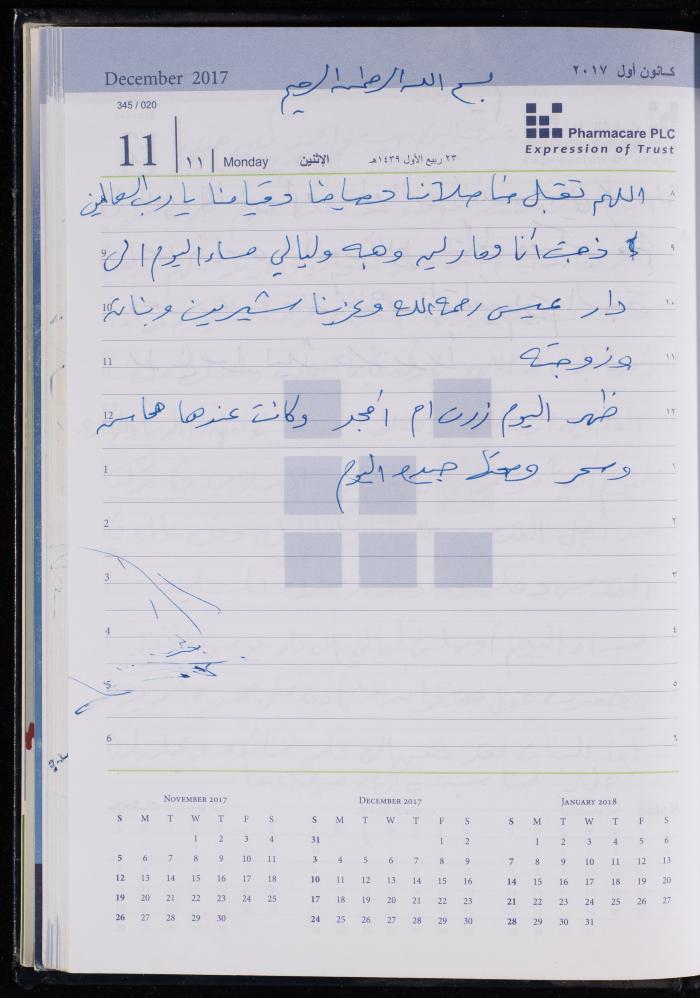 December 2017
كانون أول ٢٠١٧
بسم الله الرحمن الرحيم
345 / 020
11
١١
Monday
الإثنين
٢٣ ربيع الأول ١٤٣٩هـ
Pharmacare PLC
Expression of Trust
اللهم تقبل منا صلاتنا وصيامنا وقيامنا يا رب العالمين ٨
9 ذهبت أنا ومارلين وهبه وليالي مساء اليوم الى ٩
10 دار عيسى رحمه الله وعزينا شيرين وبناته ١٠
11 وزوجته ١١
12 ظهر اليوم زرت ام امجد وكانت عندها محاسن ١٢
1 وسحر جيده اليوم ١
2 ٢
3 ٣
4 ٤
5 ٥
6 ٦
November 2017
S M T W T F S
1 2 3 4
5 6 7 8 9 10 11
12 13 14 15 16 17 18
19 20 21 22 23 24 25
26 27 28 29 30
December 2017
S M T W T F S
31 1 2
3 4 5 6 7 8 9
10 11 12 13 14 15 16
17 18 19 20 21 22 23
24 25 26 27 28 29 30
January 2018
S M T W T F S
1 2 3 4 5 6
7 8 9 10 11 12 13
14 15 16 17 18 19 20
21 22 23 24 25 26 27
28 29 30 31